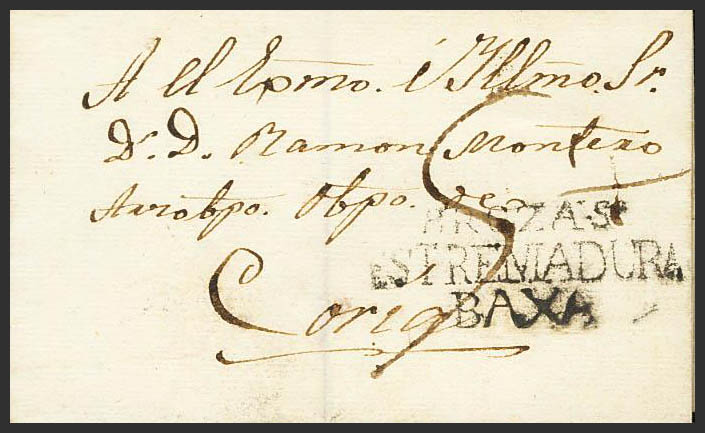 A el Exmo. é Yllmo. Sr.
Dr. D. Ramon Montero
Arzobpo. Obpo. de
Coria
5
BROZAS
ESTREMADURA
BAXA